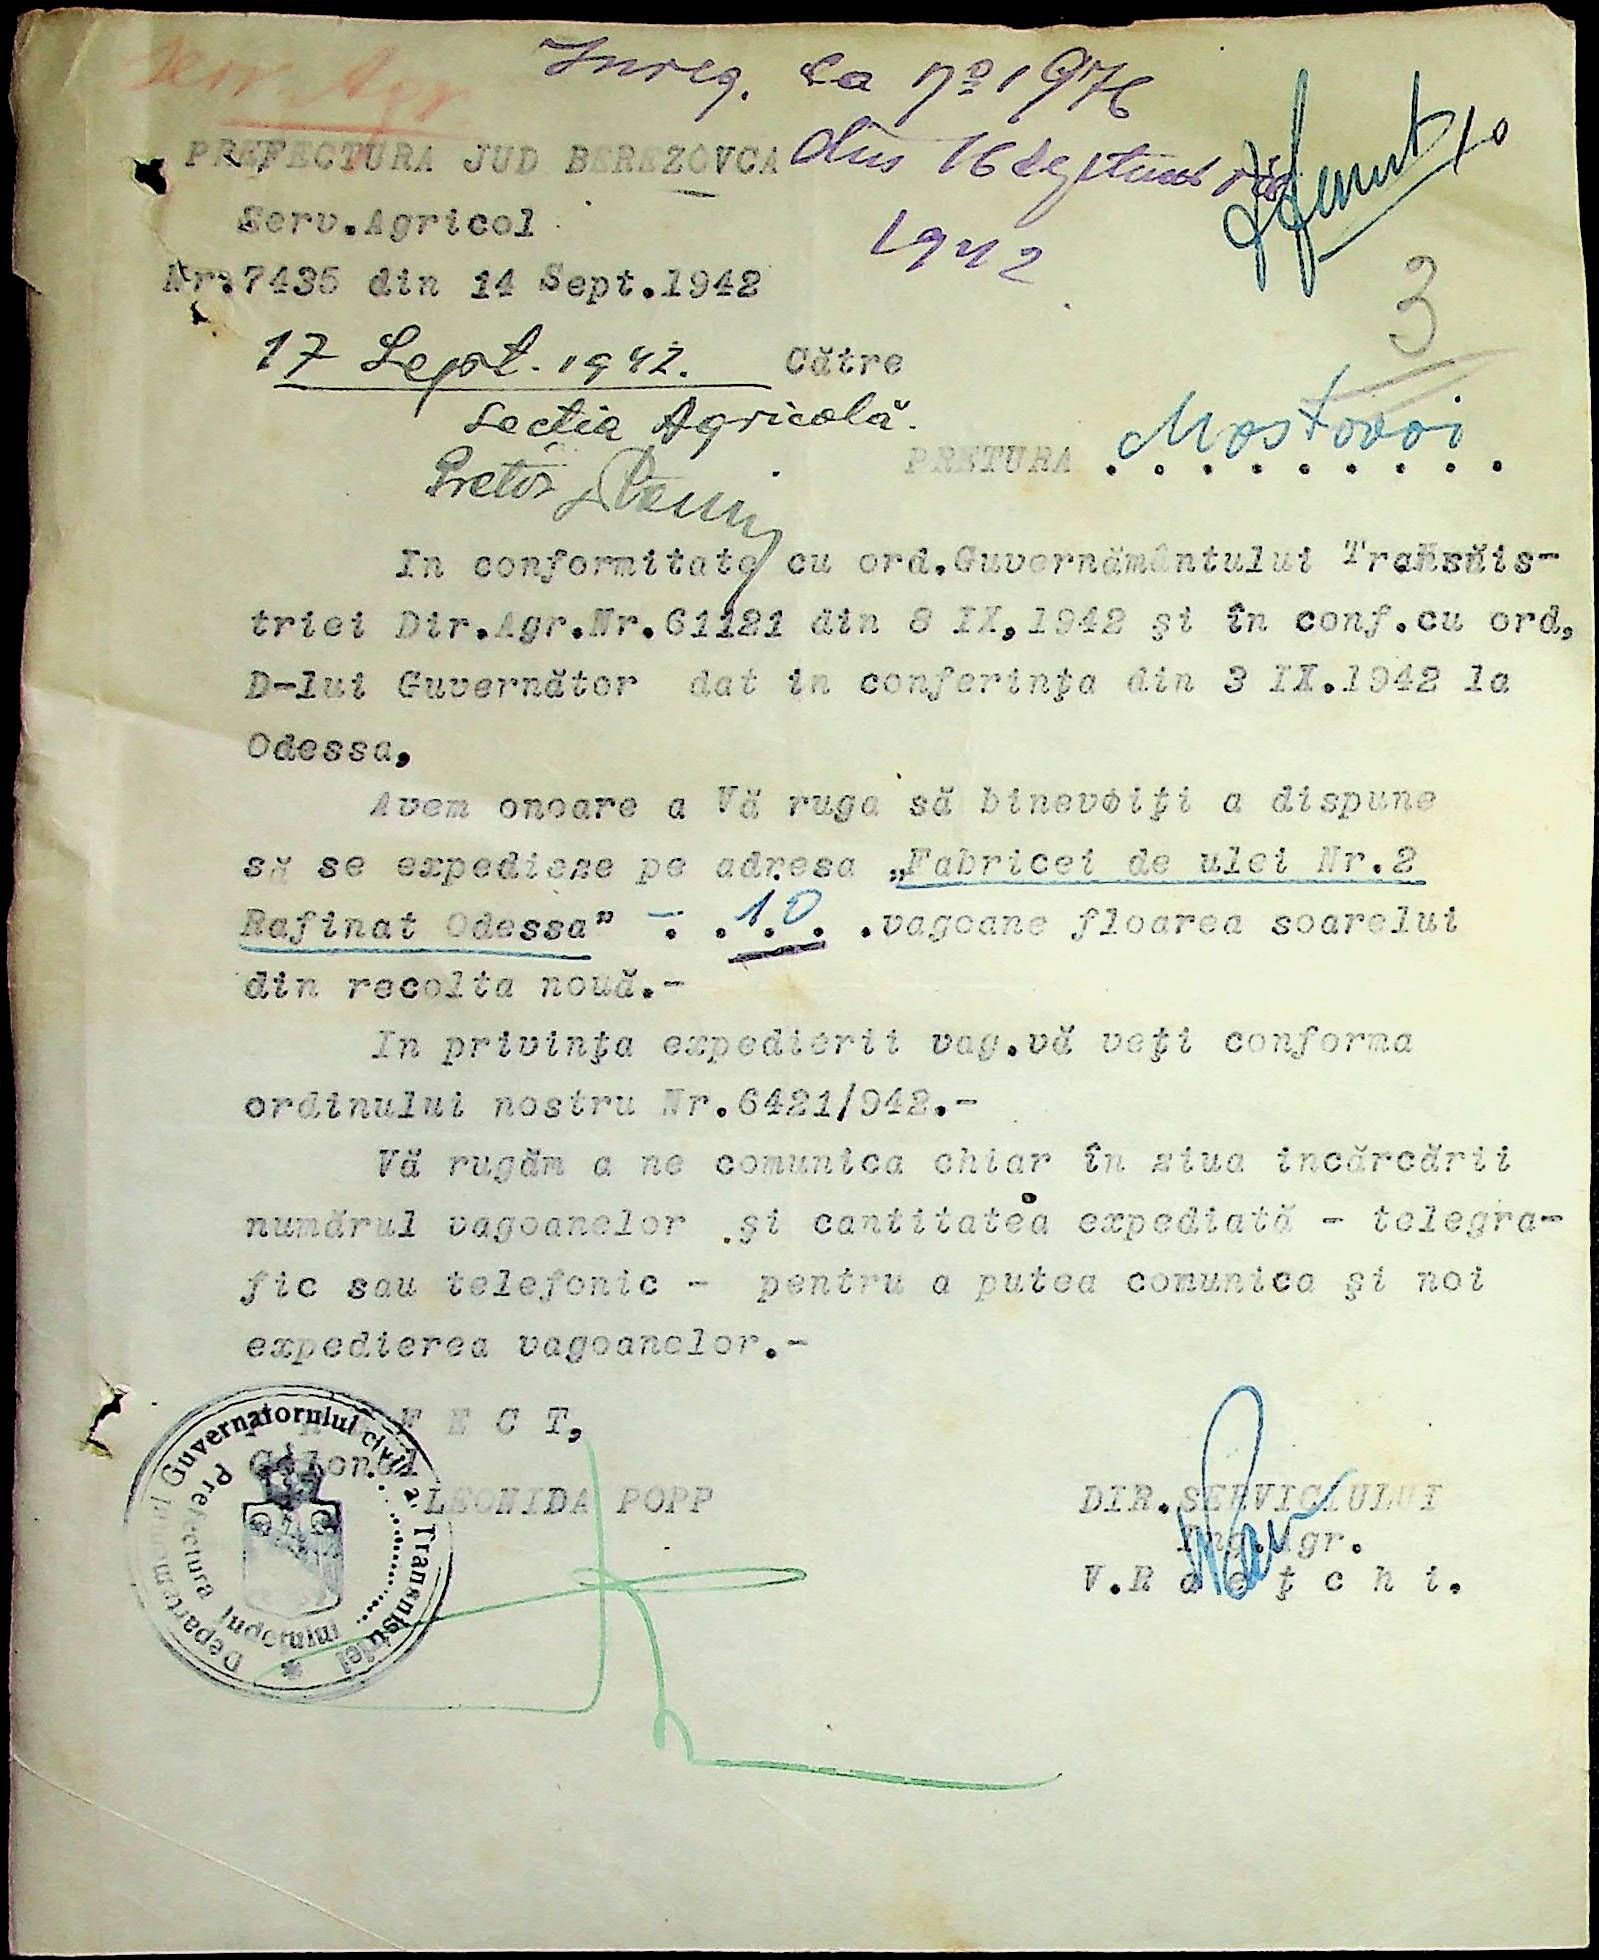 Serv. Agr.
Inreg. la No 1976
din 16 Septembrie
1942
PREFECTURA JUD BEREZOVCA
Serv.Agricol
Nr.7435 din 14 Sept.1942
3
17 Sept. 1942.
Către
Secția Agricolă.
PRETURA Mostovoi
Pretor
In conformitate cu ord.Guvernământului Transnis-
triei Dir.Agr.Nr.61121 din 8 IX,1942 şi în conf.cu ord,
D-lui Guvernător dat in conferinţa din 3 IX.1942 la
Odessa,
Avem onoare a Vă ruga să binevoiţi a dispune
să se expedieze pe adresa „Fabricei de ulei Nr.2
Rafinat Odessa" - . .10. .vagoane floarea soarelui
din recolta nouă.-
In privinţa expedierii vag.vă veţi conforma
ordinului nostru Nr.6421/942.-
Vă rugăm a ne comunica chiar în ziua incărcării
numărul vagoanelor şi cantitatea expediată - telegra-
fic sau telefonic - pentru a putea comunica şi noi
expedierea vagoanelor.-
P R E F E C T,
Colonel
LEONIDA POPP
DIR.SERVICIULUI
Ing.Agr.
V.R a e ţ c h i.
Guvernatorului civil al Transnistriei
Prefectura Judeţului